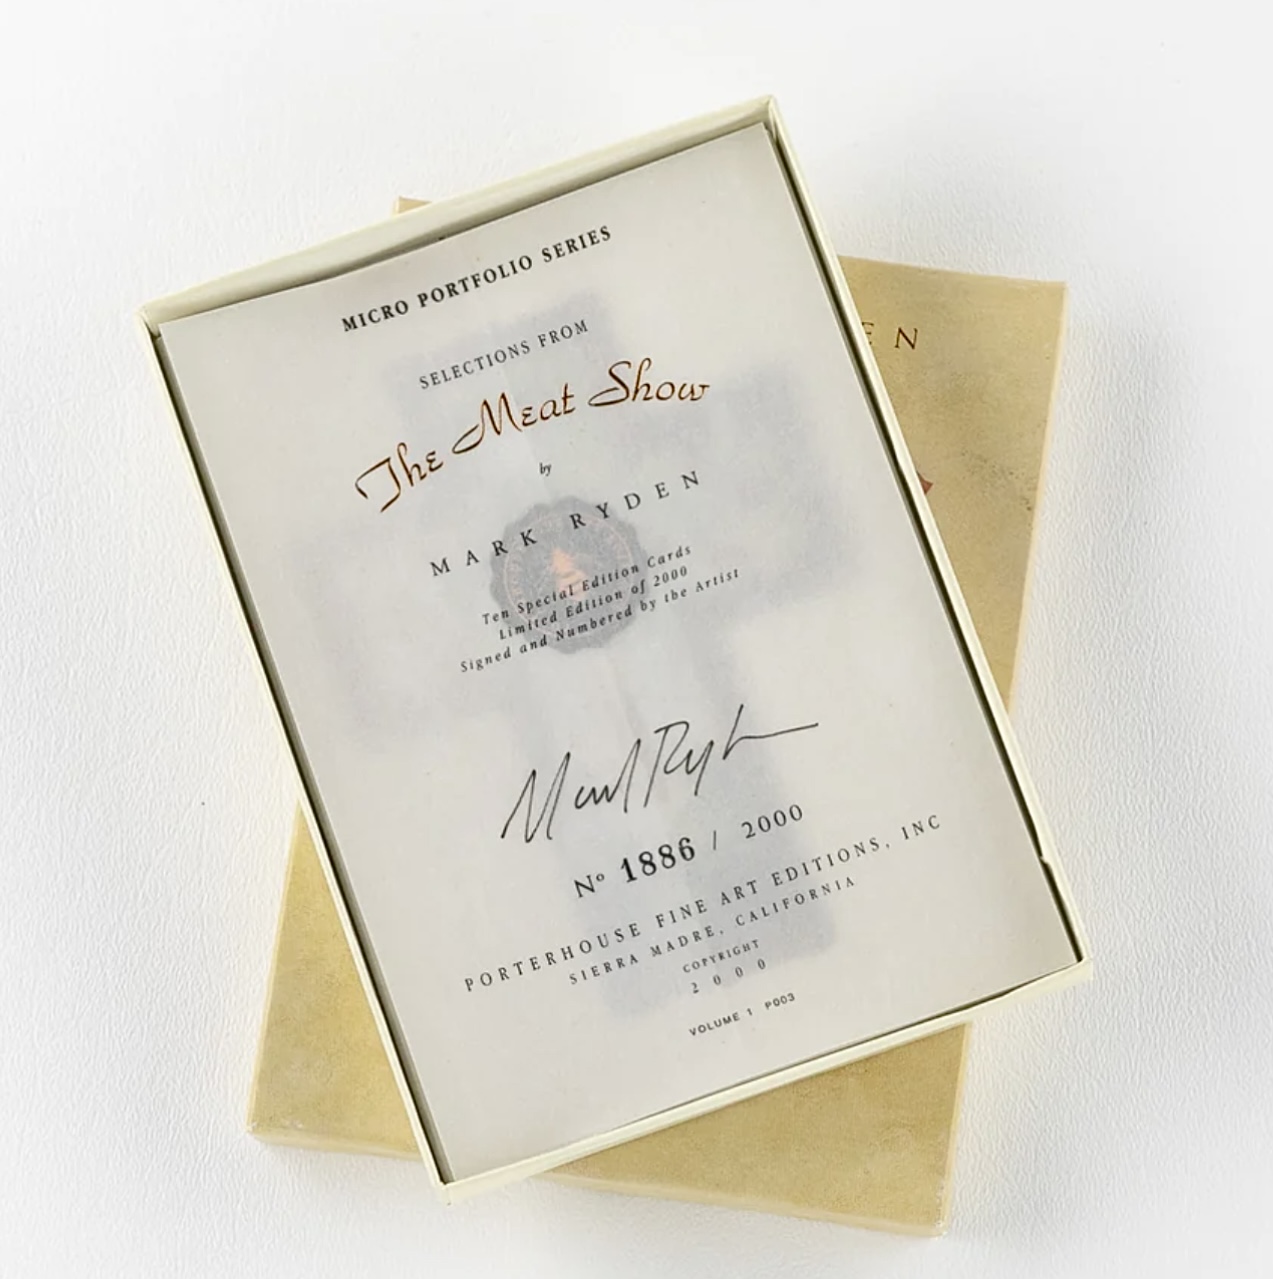 MICRO PORTFOLIO SERIES
SELECTIONS FROM
The Meat Show
by
MARK RYDEN
Ten Special Edition Cards
Limited Edition of 2000
Signed and Numbered by the Artist
Mark Ryden
Nº 1886 / 2000
PORTERHOUSE FINE ART EDITIONS, INC
SIERRA MADRE, CALIFORNIA
COPYRIGHT
2000
VOLUME 1 P003
EN